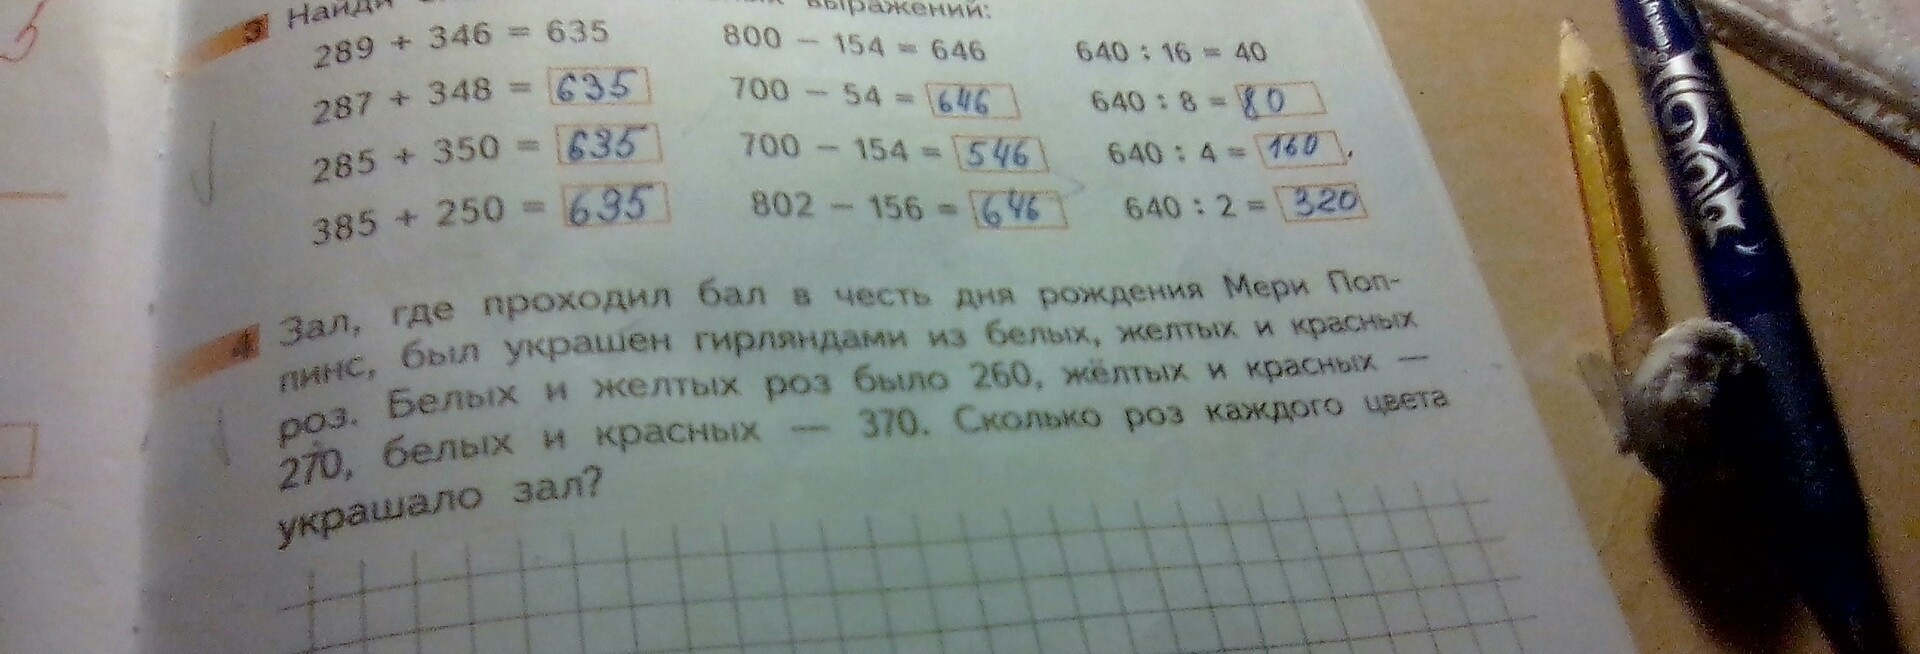 3 Найди выражений:
289 + 346 = 635 800 − 154 = 646 640 : 16 = 40
287 + 348 = 635 700 − 54 = 646 640 : 8 = 80
285 + 350 = 635 700 − 154 = 546 640 : 4 = 160
385 + 250 = 635 802 − 156 = 646 640 : 2 = 320
4 Зал, где проходил бал в честь дня рождения Мери Поп-
пинс, был украшен гирляндами из белых, желтых и красных
роз. Белых и желтых роз было 260, жёлтых и красных —
270, белых и красных — 370. Сколько роз каждого цвета
украшало зал?